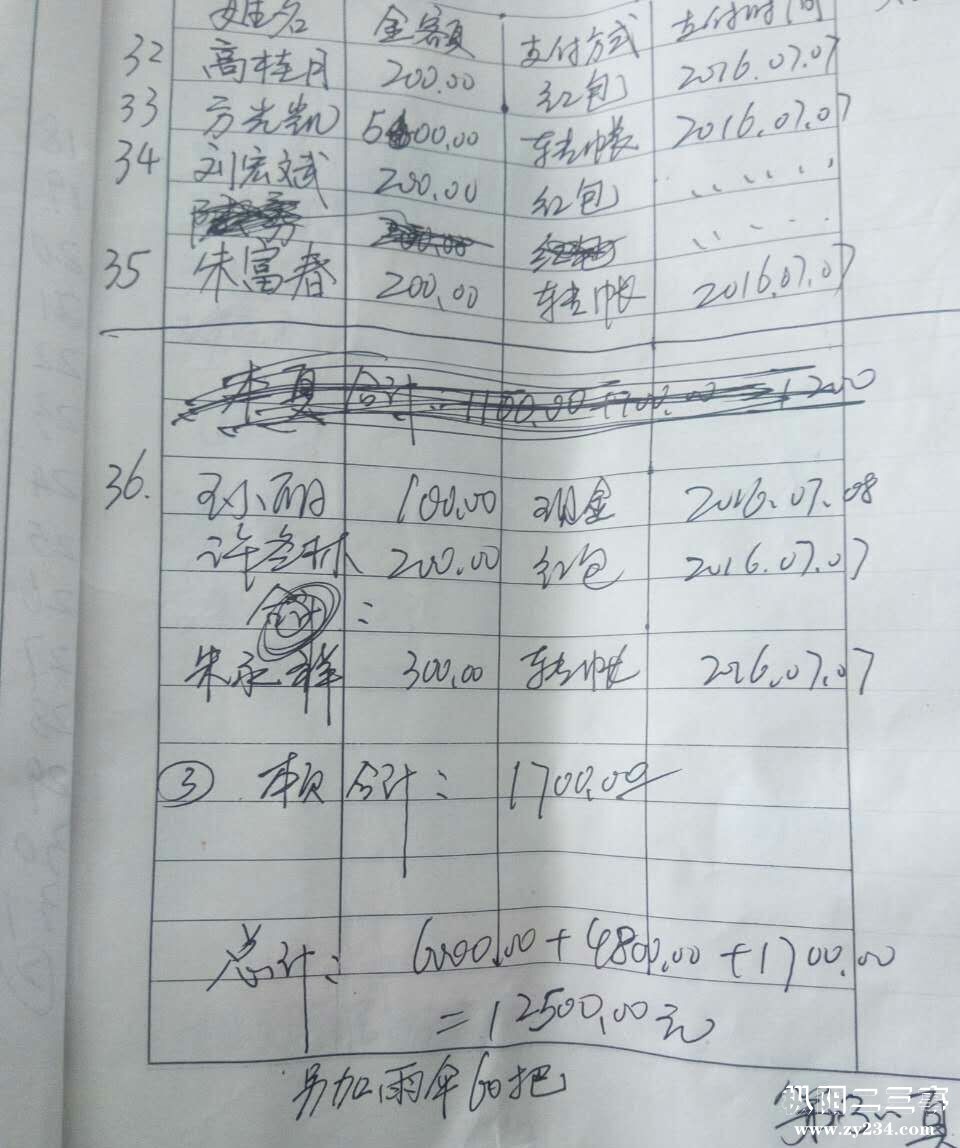 姓名 金额 支付方式 支付时间
32 高桂月 200.00 红包 2016.07.07
33 方光凯 500.00 转帐 2016.07.07
34 刘宏斌 200.00 红包 、、、、、、
、、、、、
35 朱富春 200.00 转帐 2016.07.07
本页合计: 1100.00+700.00 1200
36. 孙丽 100.00 现金 2016.07.08
许冬林 200.00 红包 2016.07.07
合计:
朱永祥 300.00 转帐 2016.07.07
③ 本页合计: 1700.00
总计: 6000.00+4800.00+1700.00
=12500.00元
另加雨伞60把
第3页
枞阳二三事
www.zy234.com